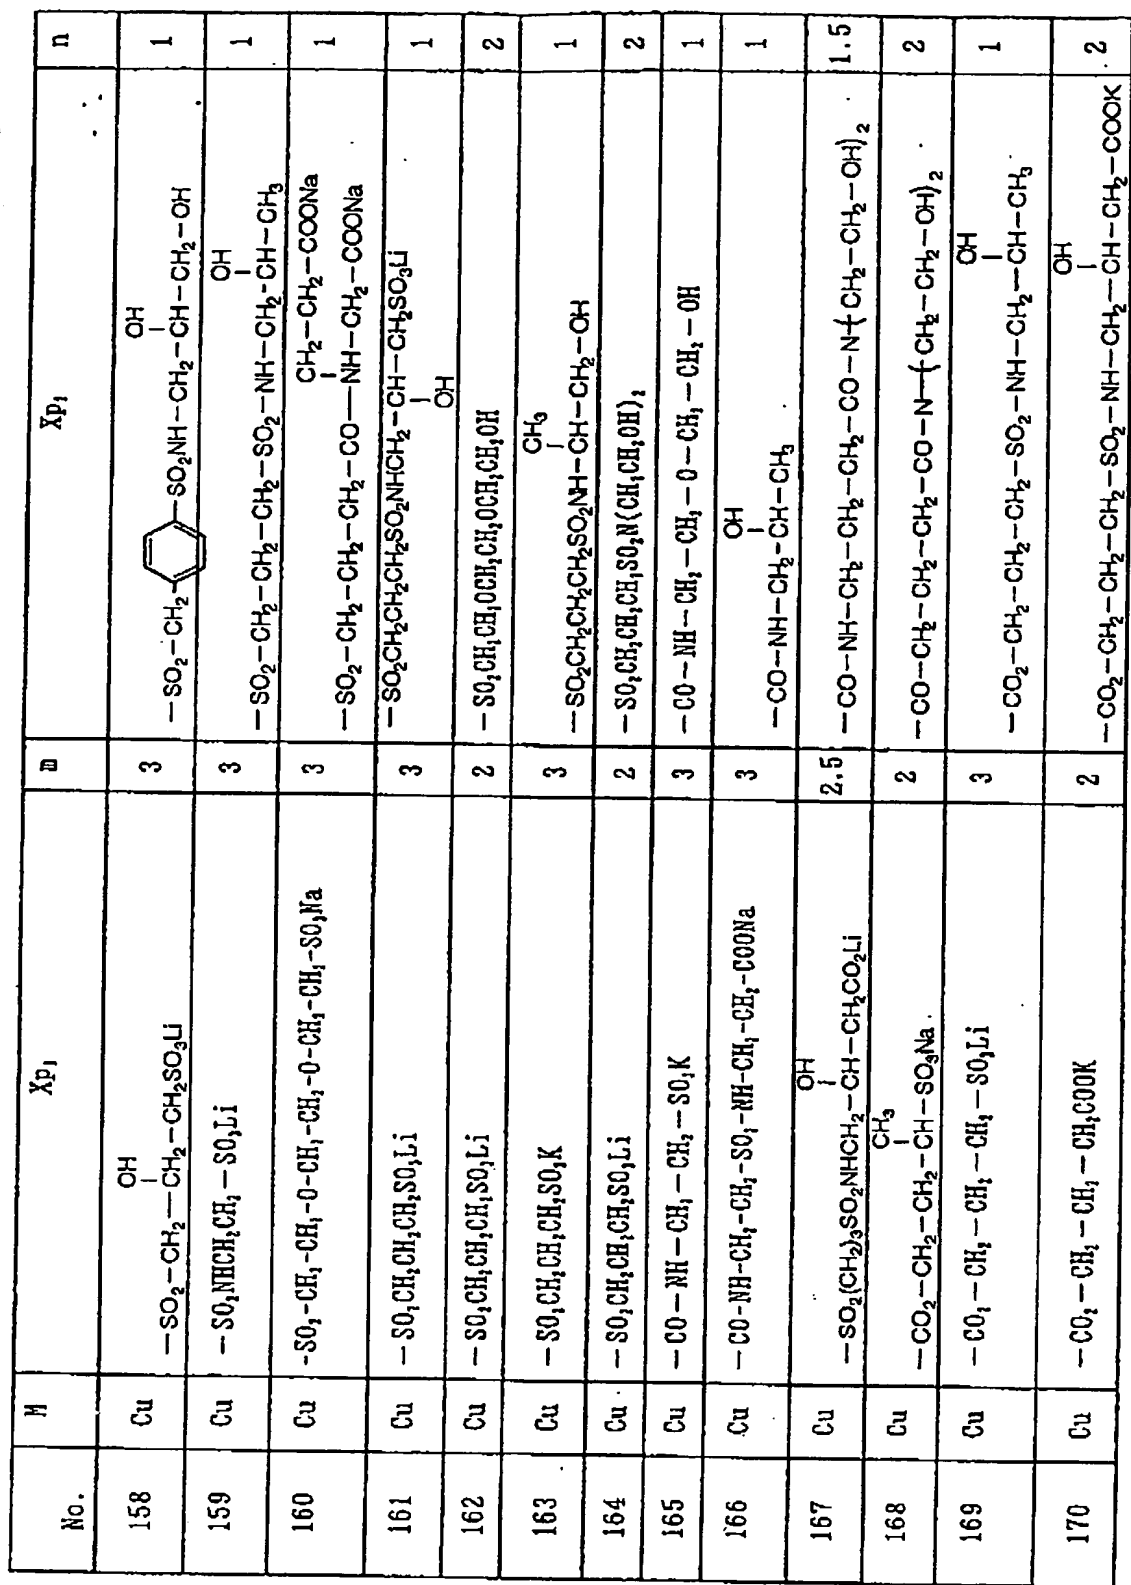 No. M Xp₁ m Xp₁ n
OH OH
158 Cu —SO₂—CH₂—CH₂—CH₂SO₃Li 3 —SO₂—CH₂—SO₂NH—CH₂—CH—CH₂—OH 1
OH
159 Cu —SO₂NHCH₂CH₂—SO₃Li 3 —SO₂—CH₂—CH₂—CH₂—SO₂—NH—CH₂—CH—CH₃ 1
CH₂—CH₂—COONa
160 Cu -SO₂-CH₂-CH₂-O-CH₂-CH₂-O-CH₂-CH₂-SO₃Na 3 —SO₂—CH₂—CH₂—CH₂—CO—NH—CH₂—COONa 1
161 Cu —SO₂CH₂CH₂CH₂SO₃Li 3 —SO₂CH₂CH₂CH₂SO₂NHCH₂—CH—CH₂SO₃Li 1
OH
162 Cu —SO₂CH₂CH₂CH₂SO₃Li 2 —SO₂CH₂CH₂OCH₂CH₂OCH₂CH₂OH 2
CH₃
163 Cu —SO₂CH₂CH₂CH₂SO₃K 3 —SO₂CH₂CH₂CH₂SO₂NH—CH—CH₂—OH 1
164 Cu —SO₂CH₂CH₂CH₂SO₃Li 2 —SO₂CH₂CH₂CH₂SO₂N(CH₂CH₂OH)₂ 2
165 Cu —CO—NH—CH₂—CH₂—SO₃K 3 —CO—NH—CH₂—CH₂—O—CH₂—CH₂—OH 1
OH
166 Cu —CO-NH-CH₂-CH₂-SO₂-NH-CH₂-CH₂-COONa 3 —CO—NH—CH₂—CH—CH₃ 1
OH
167 Cu —SO₂(CH₂)₃SO₂NHCH₂—CH—CH₂CO₂Li 2.5 —CO—NH—CH₂—CH₂—CH₂—CO—N(CH₂—CH₂—OH)₂ 1.5
CH₃
168 Cu —CO₂—CH₂—CH₂—CH—SO₃Na 2 —CO—CH₂—CH₂—CH₂—CO—N(CH₂—CH₂—OH)₂ 2
OH
169 Cu —CO₂—CH₂—CH₂—CH₂—SO₃Li 3 —CO₂—CH₂—CH₂—CH₂—SO₂—NH—CH₂—CH—CH₃ 1
OH
170 Cu —CO₂—CH₂—CH₂—CH₂COOK 2 —CO₂—CH₂—CH₂—CH₂—SO₂—NH—CH₂—CH—CH₂—COOK 2